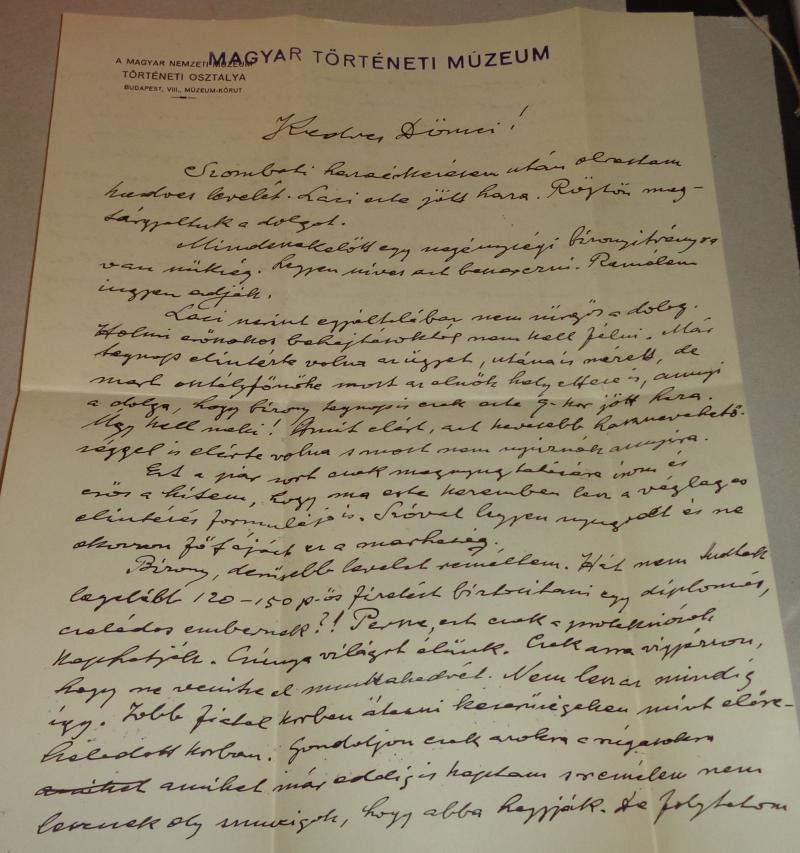 MAGYAR TÖRTÉNETI MÚZEUM
A MAGYAR NEMZETI MÚZEUM
TÖRTÉNETI OSZTÁLYA
BUDAPEST, VIII., MÚZEUM-KÖRUT
Kedves Dömei!
Szombati hazaérkezésem után olvastam
kedves levelét. Laci este jött haza. Rögtön meg-
tárgyaltuk a dolgot.
Mindenekelőtt egy szegénységi bizonyítványra
van szükség. Legyen szíves ezt beszerezni. Remélem
ingyen adják.
Laci szerint egyáltalában nem sürgős a dolog.
Holmi erőszakos behajtásoktól nem kell félni. Már
tegnap elintézte volna az ügyet, utána is nézett, de
mert osztályfőnöke most az elnök helyettese is, annyi
a dolga, hogy bizony tegnap is csak este 9-kor jött haza.
Úgy kell neki! Amit elért, azt kevesebb hasznavehető-
séggel is elérte volna s most nem nyúznák annyira.
Ezt a pár sort csak megnyugtatására írom és
erős a hitem, hogy ma este kezemben lesz a végleges
elintézés formulája is. Szóval legyen nyugodt és ne
okozzon főfájást ez a marhaság.
Bizony, derűsebb levelet reméltem. Hát nem tudtak
legalább 120-150 p-ős fizetést biztosítani egy diplomás,
családos embernek?! Persze, ezt csak a protekciósok
kaphatják. Csúnya világot élünk. Csak arra vigyázzon,
hogy ne veszítse el munkakedvét. Nem lesz az mindig
így. Jobb fiatal korban átesni keserűségeken mint előre-
haladott korban. Gondoljon csak azokra a rúgásokra
amiket már eddig is kaptam s remélem nem
lesznek oly szmucigok, hogy abba hagyják. De folytatom